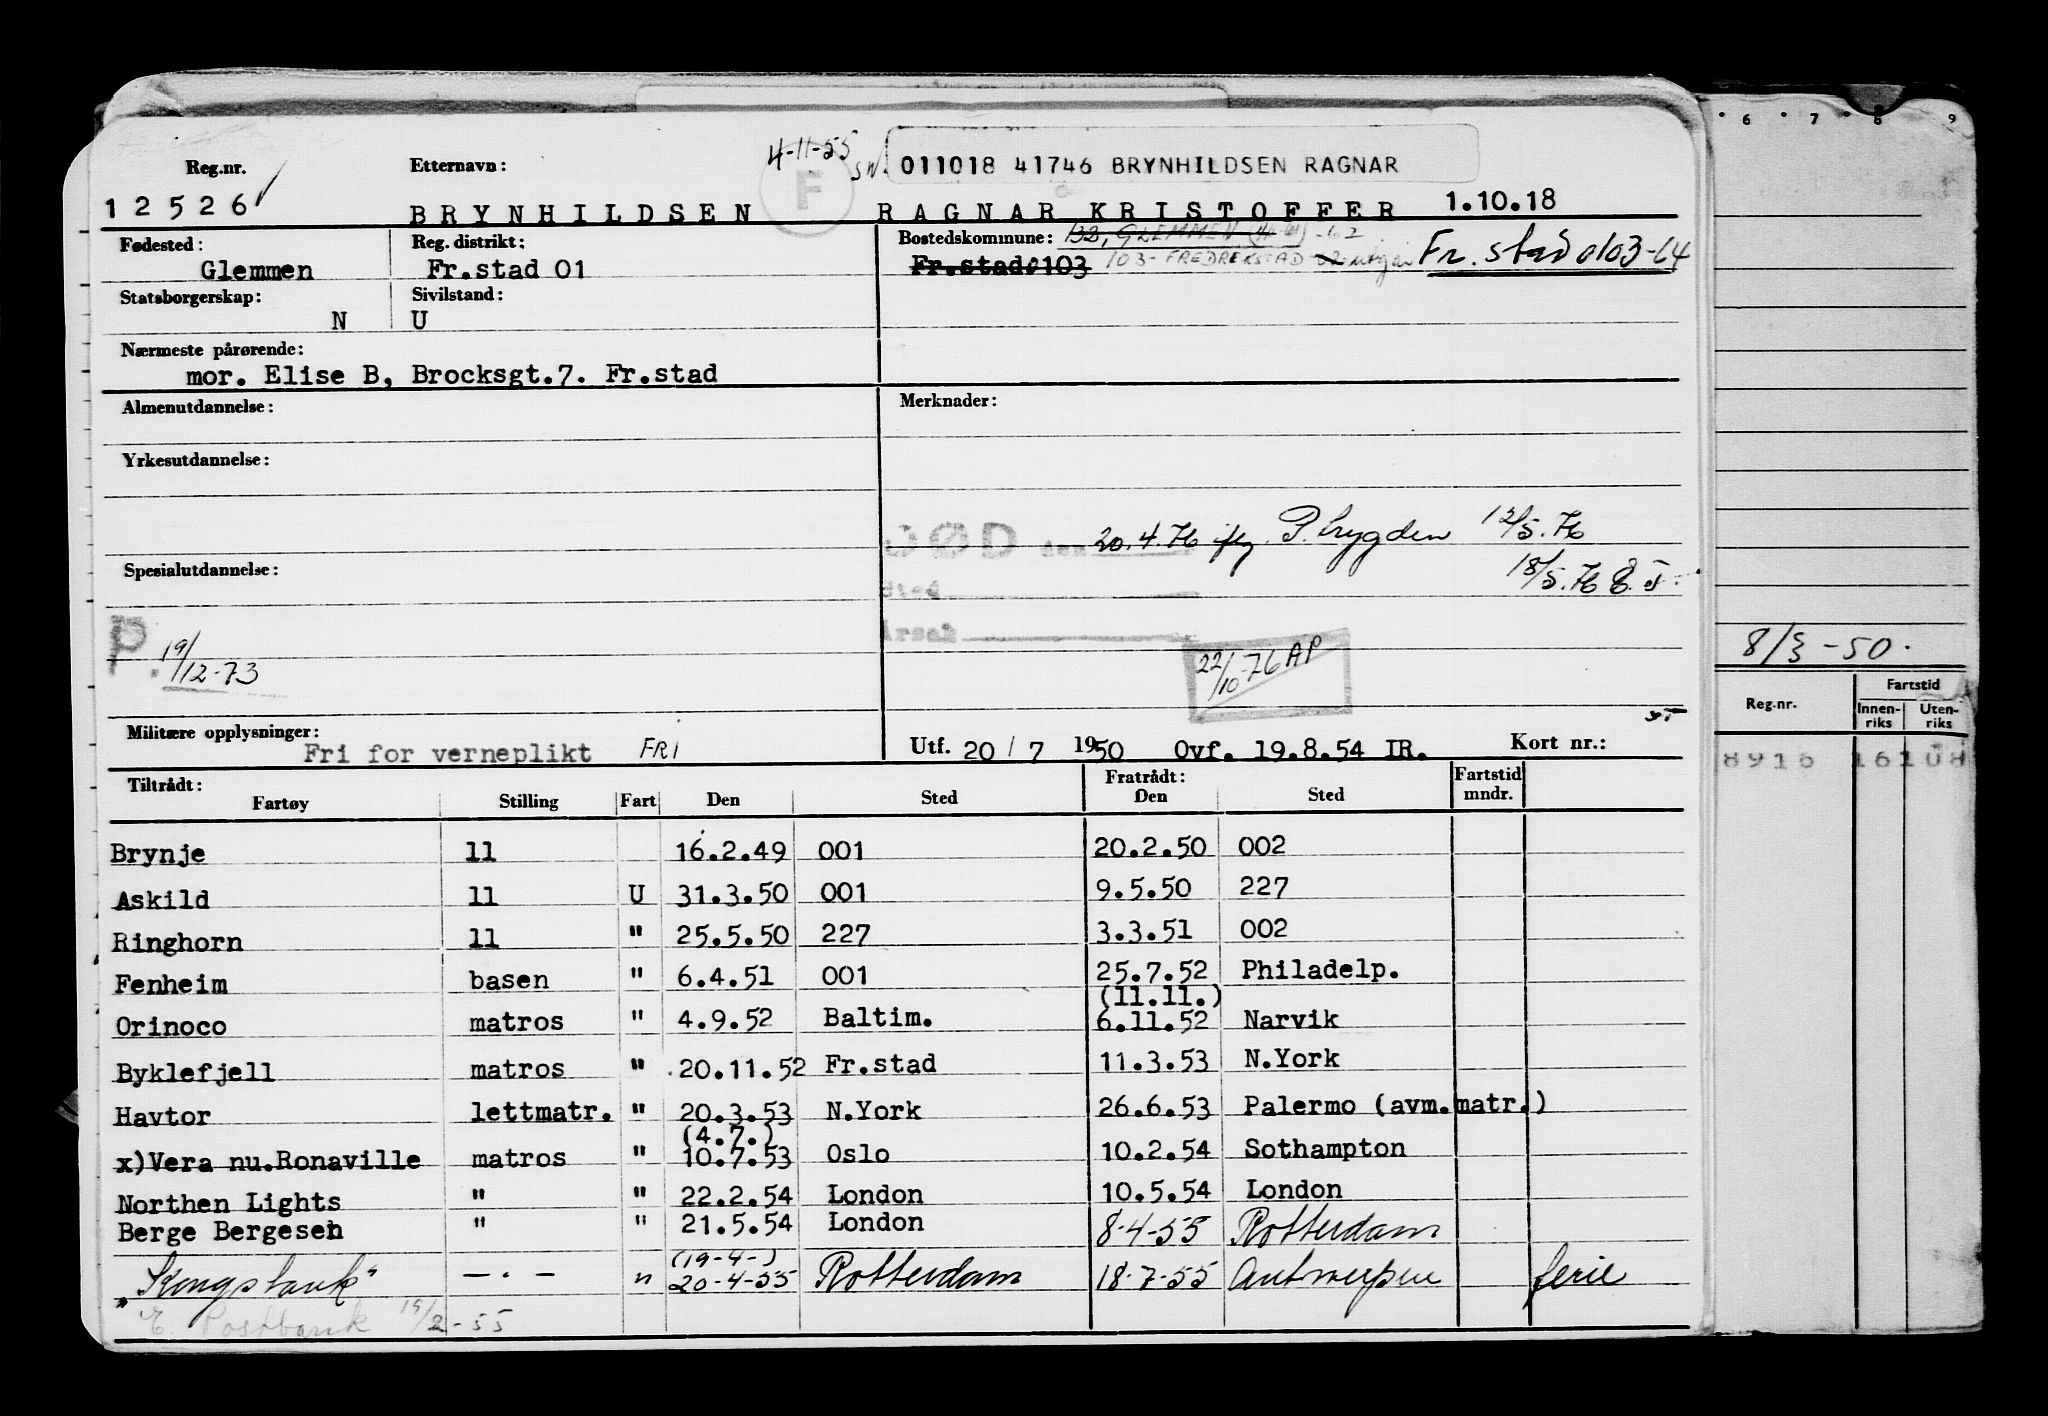 6 7 8 9
4-11-55
F
011018 41746 BRYNHILDSEN RAGNAR
Reg.nr. Etternavn:
12526 BRYNHILDSEN RAGNAR KRISTOFFER 1.10.18
Fødested: Reg. distrikt: Bostedskommune: 132, GLEMMEN
Glemmen Fr.stad 01 Fr.stad 0103 103-FREDREKSTAD Fr.stad 0103-64
Statsborgerskap: Sivilstand:
N U
Nærmeste pårørende:
mor. Elise B, Brocksgt.7. Fr.stad
Almenutdannelse: Merknader:
Yrkesutdannelse:
DØD den 20.4.76 ifg. P.trygden 12/5.76
Spesialutdannelse: 18/5.76
Sted
Årsak
P. 19/12-73
22/10-76 AP
8/3-50.
Reg.nr. Fartstid
Innen-riks Uten-riks
8916 16108
Militære opplysninger:
Fri for verneplikt FRI Utf. 20/7 1950 Ovf. 19.8.54 IR. Kort nr.:
Tiltrådt: Fratrådt: Fartstid
Fartøy Stilling Fart Den Sted Den Sted mndr.
Brynje 11 16.2.49 001 20.2.50 002
Askild 11 U 31.3.50 001 9.5.50 227
Ringhorn 11 " 25.5.50 227 3.3.51 002
Fenheim basen " 6.4.51 001 25.7.52 Philadelp.
(11.11.)
Orinoco matros " 4.9.52 Baltim. 6.11.52 Narvik
Byklefjell matros " 20.11.52 Fr.stad 11.3.53 N.York
Havtor lettmatr. " 20.3.53 N.York 26.6.53 Palermo (avm.matr.)
(4.7.)
x)Vera nu.Ronaville matros " 10.7.53 Oslo 10.2.54 Sothampton
Northen Lights " " 22.2.54 London 10.5.54 London
Berge Bergesen " " 21.5.54 London 8-4-55 Rotterdam
(19-4-)
"Kongstank" —"— " 20-4-55 Rotterdam 18-7-55 Antwerpen ferie
Postbank 19/2-55